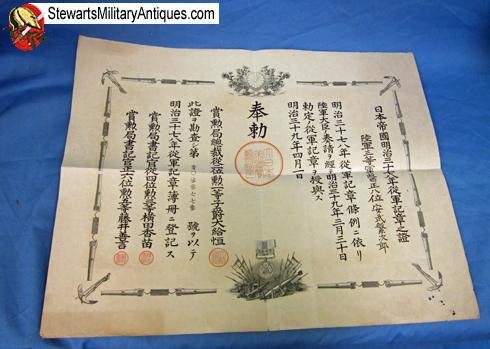 StewartsMilitaryAntiques.com
日本帝國明治三十七八年從軍記章之證
陸軍三等軍醫正八位安武繁次郎
明治三十七八年從軍記章條例ニ依リ
陸軍大臣ノ奏請ヲ經明治三十九年三月三十日
勅定ノ從軍記章ヲ授與ス
明治三十九年四月一日
奉勅
賞勳局總裁從二位勳一等子爵大給恒
此證ヲ勘査シ第 號ヲ以テ
明治三十七八年從軍記章簿冊ニ登記ス
賞勳局書記官從四位勳三等橫田香苗
賞勳局書記官正六位勳五等藤井善言